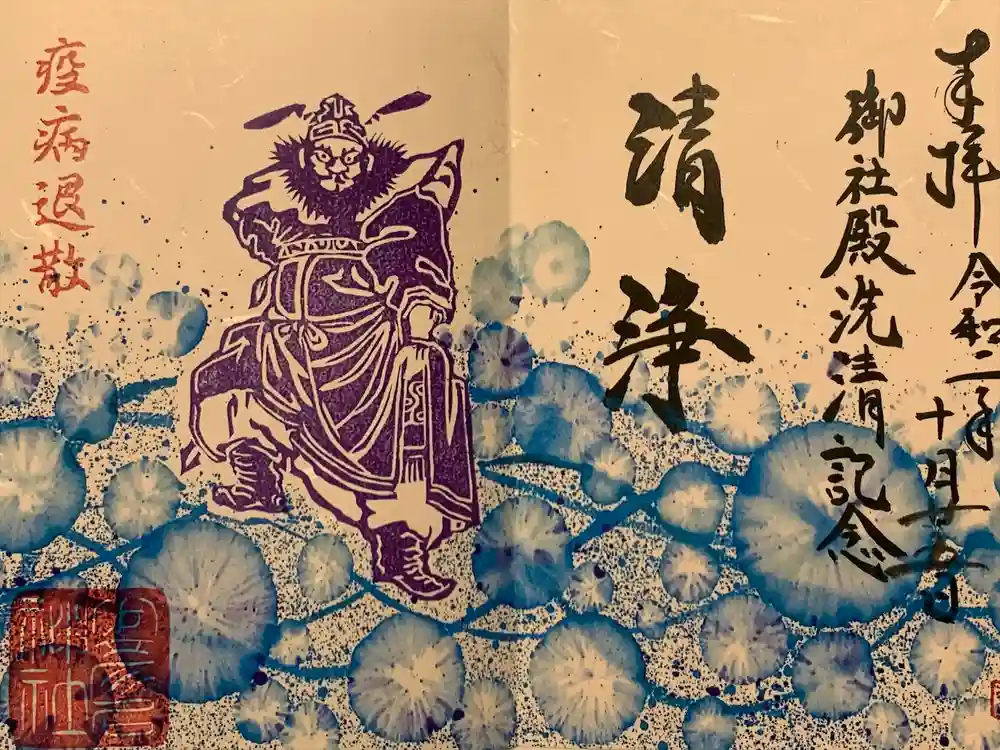 奉拝 令和二年十月廿五日
御社殿洗清記念
清浄
疫病退散